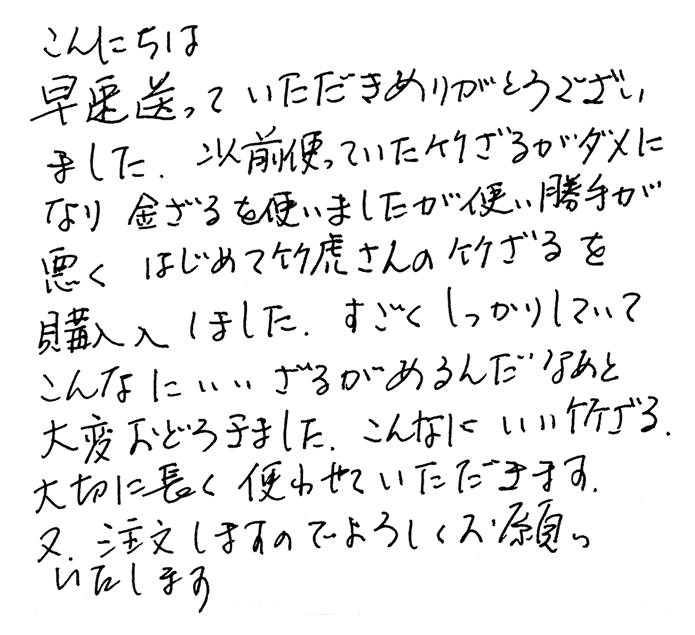 こんにちは
早速送っていただきありがとうござい
ました．以前使っていた竹ざるがダメに
なり 金ざるを使いましたが使い勝手が
悪く はじめて竹虎さんの竹ざるを
購入しました．すごくしっかりしていて
こんなにいい ざるがあるんだなあと
大変おどろきました．こんなにいい竹ざる．
大切に長く使わせていただきます．
又．注文しますのでよろしくお願い
いたします